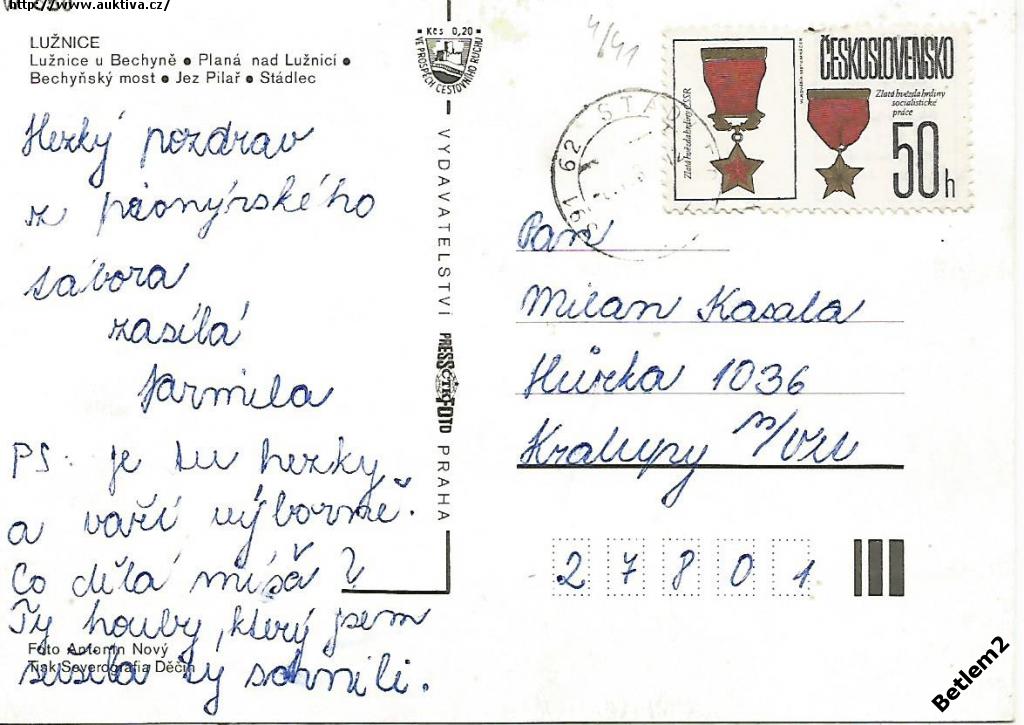 http://www.auktiva.cz/
LUŽNICE
Lužnice u Bechyně • Planá nad Lužnicí •
Bechyňský most • Jez Pilař • Stádlec
Hezký pozdrav
z pionýrského
tábora
zasílá
Jarmila
PS. je tu hezky
a vaří výborně.
Co dělá míšá?
Ty houby, který jsem
sušila
schnili.
Foto Antonín Nový
Tisk Severografia Děčín
Kčs 0,20
VE PROSPĚCH CESTOVNÍHO RUCHU
VYDAVATELSTVÍ
PRESSFOTO
ČTK
PRAHA
4/41
391 62 STÁD
Zlatá hvězda hrdiny ČSSR
ČESKOSLOVENSKO
Zlatá hvězda hrdiny
socialistické
práce
50h
Pan
Milan Kasala
Hůrka 1036
Kralupy n/Vlt
27801
Betlem2